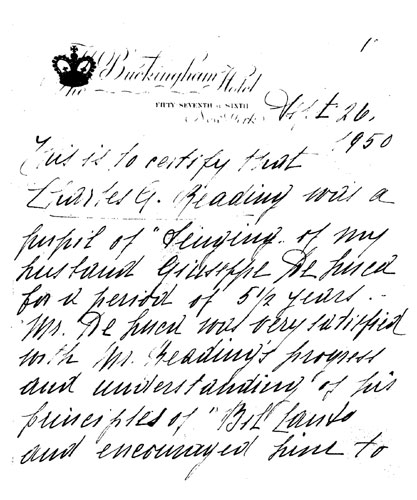 1
The Buckingham Hotel
FIFTY SEVENTH & SIXTH
New York
Sept. 26,
1950
This is to certify that
Charles G. Reading was a
pupil of "Singing of my
husband Giuseppe De Luca
for a period of 5 1/2 years.
Mr. De Luca was very satisfied
with Mr. Reading's progress
and understanding of his
principles of "Bel Canto
and encouraged him to